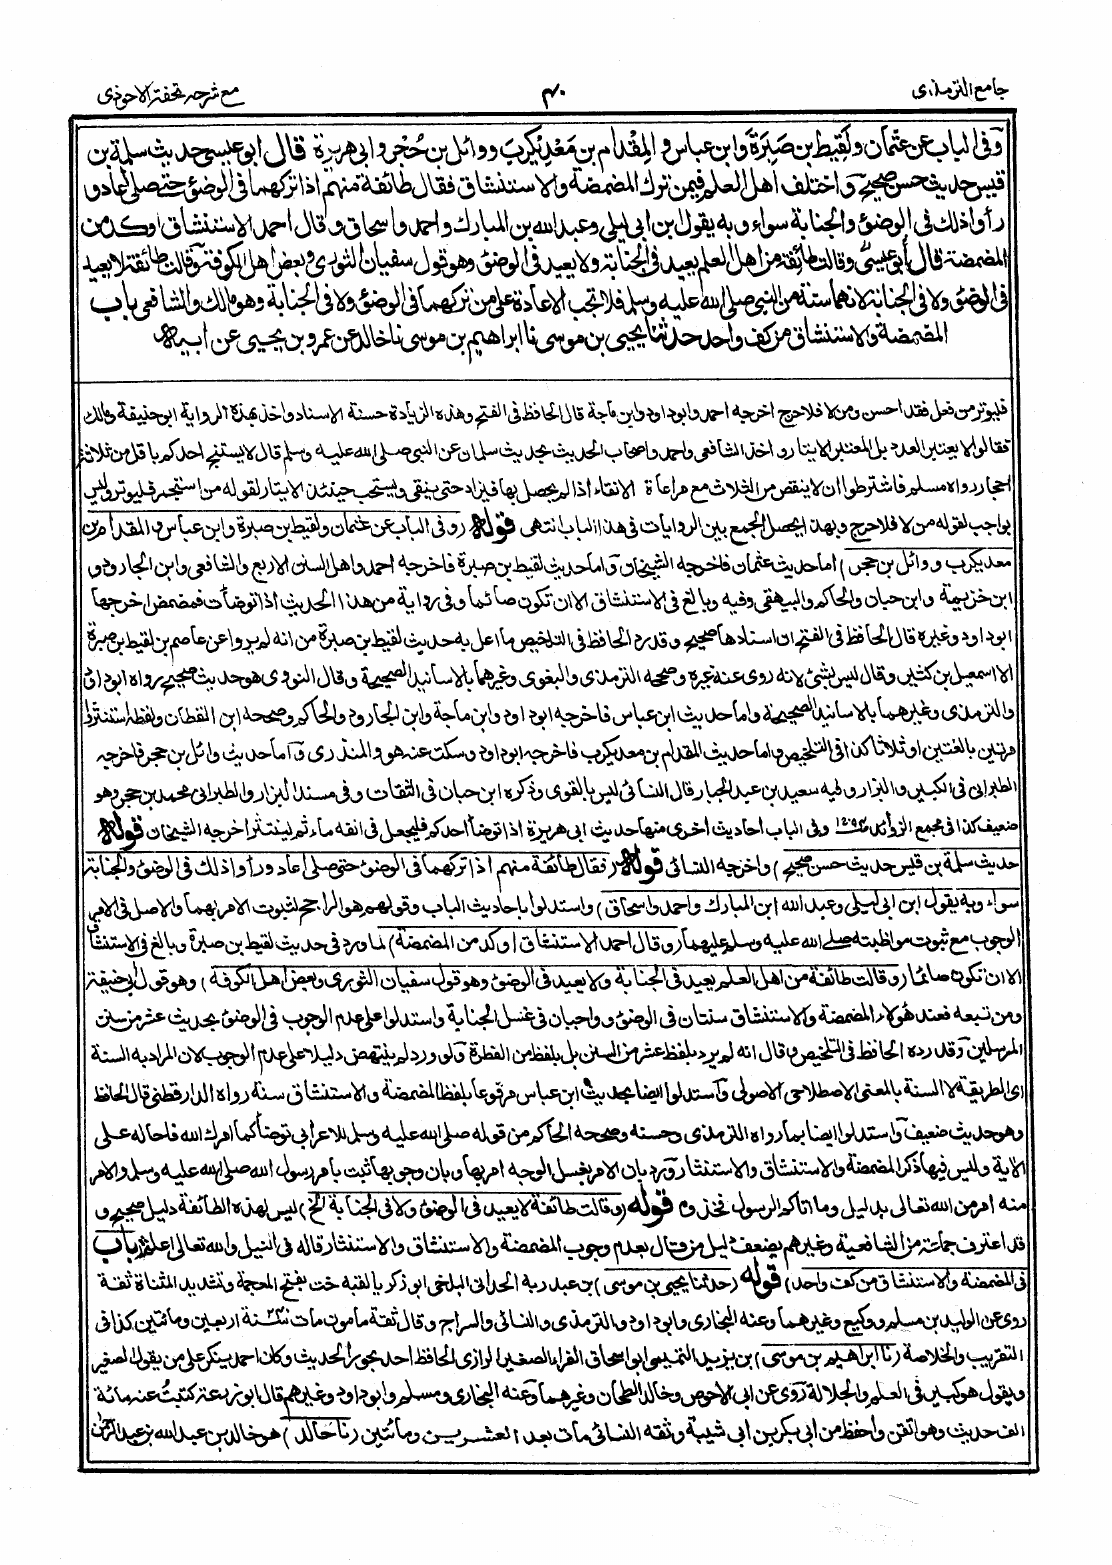 جامع الترمذی
۴۰
مع شرحہ تحفۃ الاحوذی
وفی الباب عن عثمان ولقیط بن صبرۃ وابن عباس والمقدام بن معد یکرب ووائل بن حجر وابی ھریرۃ قال ابو عیسی حدیث سلمۃ بن
قیس حدیث حسن صحیح واختلف اھل العلم فیمن ترک المضمضۃ والاستنشاق فقال طائفۃ منھم اذا ترکھما فی الوضوء حتی صلی اعاد و
رأوا ذلک فی الوضوء والجنابۃ سواء وبہ یقول ابن ابی لیلی وعبد اللہ بن المبارک واحمد واسحاق وقال احمد الاستنشاق اوکد من
المضمضۃ قال ابو عیسی وقالت طائفۃ من اھل العلم یعید فی الجنابۃ ولا یعید فی الوضوء وھو قول سفیان الثوری وبعض اھل الکوفۃ وقالت طائفۃ لا یعید
فی الوضوء ولا فی الجنابۃ لانھما سنۃ من النبی صلی اللہ علیہ وسلم فلا تجب الاعادۃ علی من ترکھما فی الوضوء ولا فی الجنابۃ وھو مالک والشافعی باب
المضمضۃ والاستنشاق من کف واحد حدثنا یحیی بن موسی نا ابراھیم بن موسی نا خالد عن عمرو بن یحیی عن ابیہ
فلیوتر من فعل فقد احسن ومن لا فلا حرج اخرجہ احمد وابو داود وابن ماجۃ قال الحافظ فی الفتح وھذہ الزیادۃ حسنۃ الاسناد واخذ بھذہ الروایۃ ابو حنیفۃ ومالک
فقالوا لا یعتبر العدد بل المعتبر الایتار واخذ الشافعی واحمد واصحاب الحدیث بحدیث سلمان عن النبی صلی اللہ علیہ وسلم قال لا یستنج احدکم باقل من ثلاثۃ
احجار رواہ مسلم فاشترطوا ان لا ینقص من الثلاث مع مراعاۃ الانقاء اذا لم یحصل بھا فیزاد حتی ینقی ویستحب حینئذ الایتار لقولہ من استجمر فلیوتر ولیس
بواجب لقولہ من لا فلا حرج وبھذا یحصل الجمع بین الروایات فی ھذا الباب انتھی قولہ (وفی الباب عن عثمان ولقیط بن صبرۃ وابن عباس والمقدام بن
معد یکرب ووائل بن حجر) اما حدیث عثمان فاخرجہ الشیخان واما حدیث لقیط بن صبرۃ فاخرجہ احمد واھل السنن الاربع والشافعی وابن الجارود و
ابن خزیمۃ وابن حبان والحاکم والبیھقی وفیہ وبالغ فی الاستنشاق الا ان تکون صائما وفی روایۃ من ھذا الحدیث اذا توضأت فمضمض اخرجھا
ابو داود وغیرہ قال الحافظ فی الفتح ان اسنادھا صحیح وقد رد الحافظ فی التلخیص ما اعل بہ حدیث لقیط بن صبرۃ من انہ لم یرو عن عاصم بن لقیط بن صبرۃ
الا اسمعیل بن کثیر وقال لیس بشئ لانہ روی عنہ غیرہ وصححہ الترمذی والبغوی وغیرھما بالاسانید الصحیحۃ وقال النووی ھو حدیث صحیح رواہ ابو داود
والترمذی وغیرھما بالاسانید الصحیحۃ واما حدیث ابن عباس فاخرجہ ابو داود وابن ماجۃ وابن الجارود والحاکم وصححہ ابن القطان ولفظہ استنثروا
مرتین بالغتین او ثلاثا کذا فی التلخیص واما حدیث المقدام بن معد یکرب فاخرجہ ابو داود وسکت عنہ ھو والمنذری واما حدیث وائل بن حجر فاخرجہ
الطبرانی فی الکبیر والبزار وفیہ سعید بن عبد الجبار قال النسائی لیس بالقوی وذکرہ ابن حبان فی الثقات وفی مسند البزار والطبرانی محمد بن حجر وھو
ضعیف کذا فی مجمع الزوائد وفی الباب احادیث اخری منھا حدیث ابی ھریرۃ اذا توضأ احدکم فلیجعل فی انفہ ماء ثم لینتثر اخرجہ الشیخان قولہ
حدیث سلمۃ بن قیس حدیث حسن صحیح) واخرجہ النسائی قولہ (فقال طائفۃ منھم اذا ترکھما فی الوضوء حتی صلی اعاد ورأوا ذلک فی الوضوء والجنابۃ
سواء وبہ یقول ابن ابی لیلی وعبد اللہ ابن المبارک واحمد واسحاق) واستدلوا باحادیث الباب وقولھم ھو الراجح لثبوت الامر بھما والاصل فی الامر
الوجوب مع ثبوت مواظبتہ صلی اللہ علیہ وسلم علیھما (وقال احمد الاستنشاق اوکد من المضمضۃ) لما ورد فی حدیث لقیط بن صبرۃ وبالغ فی الاستنشاق
الا ان تکون صائما (وقالت طائفۃ من اھل العلم یعید فی الجنابۃ ولا یعید فی الوضوء وھو قول سفیان الثوری وبعض اھل الکوفۃ) وھو قول ابی حنیفۃ
ومن تبعہ فعند ھؤلاء المضمضۃ والاستنشاق سنتان فی الوضوء وواجبان فی غسل الجنابۃ واستدلوا علی عدم الوجوب فی الوضوء بحدیث عشر من سنن
المرسلین وقد ردہ الحافظ فی التلخیص وقال انہ لم یرد بلفظ عشر من السنن بل بلفظ من الفطرۃ ولو ورد لم ینتھض دلیلا علی عدم الوجوب لان المراد بہ السنۃ
ای الطریقۃ لا السنۃ بالمعنی الاصطلاحی الاصولی واستدلوا ایضا بحدیث ابن عباس مرفوعا بلفظ المضمضۃ والاستنشاق سنۃ رواہ الدارقطنی قال الحافظ
وھو حدیث ضعیف واستدلوا ایضا بما رواہ الترمذی وحسنہ وصححہ الحاکم من قولہ صلی اللہ علیہ وسلم للاعرابی توضأ کما امرک اللہ فاحالہ علی
الآیۃ ولیس فیھا ذکر المضمضۃ والاستنشاق والاستنثار ورد بان الامر بغسل الوجہ امر بھا وبان وجوبھا ثبت بامر رسول اللہ صلی اللہ علیہ وسلم والامر
منہ امر من اللہ تعالی بدلیل وما اتاکم الرسول فخذوہ قولہ (وقالت طائفۃ لا یعید فی الوضوء ولا فی الجنابۃ الخ) لیس لھذہ الطائفۃ دلیل صحیح و
قد اعترف جماعۃ من الشافعیۃ وغیرھم بضعف دلیل من قال بعدم وجوب المضمضۃ والاستنشاق والاستنثار قالہ فی النیل واللہ تعالی اعلم باب
فی المضمضۃ والاستنشاق من کف واحد) قولہ (حدثنا یحیی بن موسی) بن عبد ربہ الحدانی البلخی ابو ذکریا لقبہ خت بفتح المعجمۃ وتشدید المثناۃ ثقۃ
روی عن الولید بن مسلم ووکیع وغیرھما وعنہ البخاری وابو داود والترمذی والنسائی والسراج وقال ثقۃ مأمون مات سنۃ اربعین ومائتین کذا فی
التقریب والخلاصۃ (نا ابراھیم بن موسی) بن یزید التمیمی ابو اسحاق الفراء الصغیر الرازی الحافظ احد بحور الحدیث وکان احمد ینکر علی من یقول الصغیر
ویقول ھو کبیر فی العلم والجلالۃ روی عن ابی الاحوص وخالد الطحان وغیرھما وعنہ البخاری ومسلم وابو داود وغیرھم قال ابو زرعۃ کتبت عنہ مائۃ
الف حدیث وھو اتقن واحفظ من ابی بکر بن ابی شیبۃ وثقہ النسائی مات بعد العشرین ومائتین (نا خالد) ھو خالد بن عبد اللہ بن عبد الرحمن